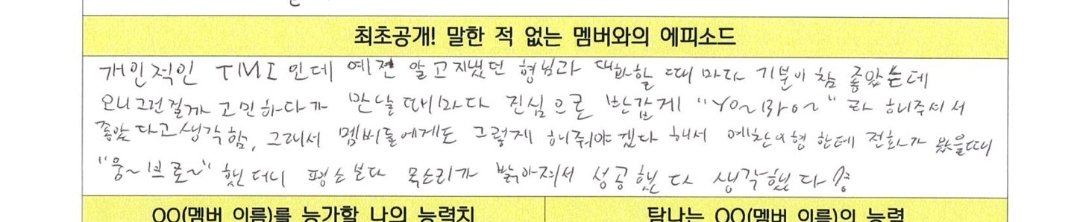 최초공개! 말한 적 없는 멤버와의 에피소드
개인적인 TMI 인데 예전 알고지냈던 형님과 대화할 때 마다 기분이 참 좋았는데
왜 그런걸까 고민하다가 만날 때마다 진심으로 반갑게 "YO~ 브라~" 라 해주셔서
좋았다고 생각함, 그래서 멤버들에게도 그렇게 해줘야겠다 해서 예찬이형 한테 전화가 왔을때
"웅~ 브로~" 했더니 평소보다 목소리가 밝아져서 성공했다 생각했다
OO(멤버 이름)를 능가할 나의 능력치
탐나는 OO(멤버 이름)의 능력